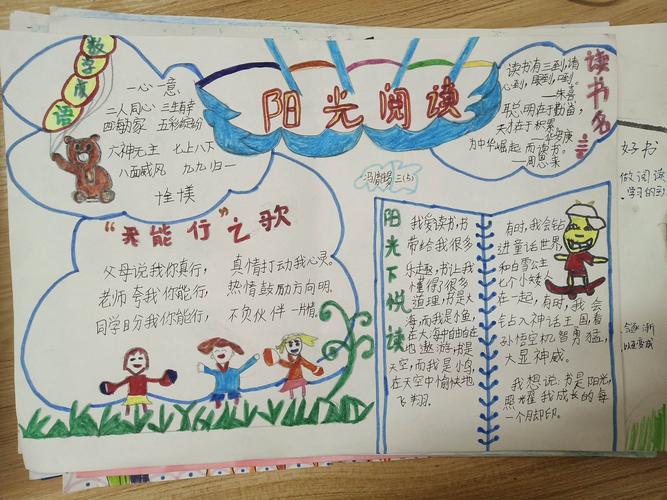 阳光阅读
数字成语
一心一意
二人同心 三生有幸
四海为家 五彩缤纷
六神无主 七上八下
八面威风 九九归一
十全十美
读书名言
读书有三到,谓
心到,眼到,口到。
——朱熹
聪明在于勤奋,
天才在于积累。
——华罗庚
为中华崛起而读书。
——周恩来
三(5)
“我能行”之歌
父母说我你真行,
老师夸我你能行,
同学日分我你能行,
真情打动我心灵。
热情鼓励方向明。
不负伙伴一片情。
阳光下悦读
我爱读书,书
带给我很多
乐趣,书让我
懂得了很多
道理,书是大
海,而我是小鱼,
在大海中自由在
地遨游,书是
天空,而我是小鸟,
在天空中愉快地
飞翔。
有时,我会钻
进童话世界,
和白雪公主
七个小矮人
在一起,有时,我会
钻入神话王国看
孙悟空机智勇猛,
大显神威。
我想说:书是阳光,
照耀我成长的每
一个脚印。
好书
做阅读
学习的